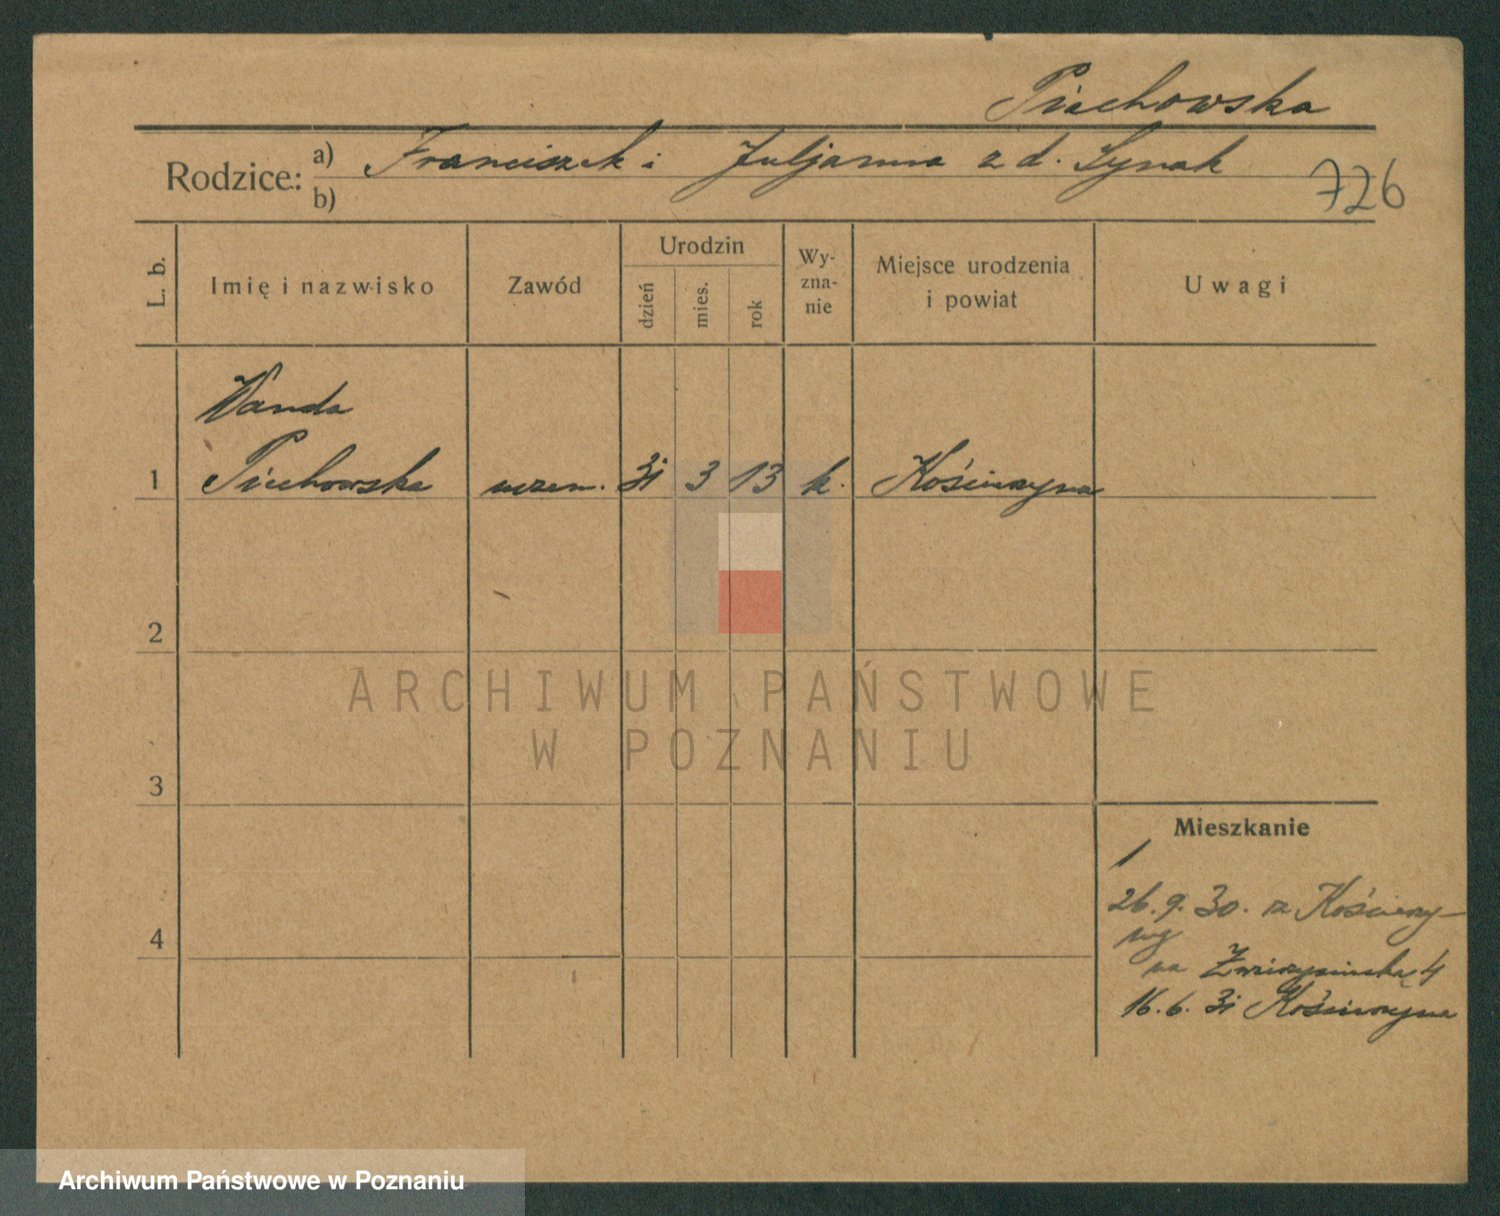 Piechowska
Rodzice: a) Franciszek i Juljanna z d. Synak
b)
726
L. b. Imię i nazwisko Zawód Urodzin dzień mies. rok Wy-zna-nie Miejsce urodzenia i powiat Uwagi
Wanda
1 Piechowska uczen. 31 3 13 k. Kościerzyna
2
ARCHIWUM PAŃSTWOWE
W POZNANIU
3
Mieszkanie
1
26. 9. 30. z Kościerzy-
ny
4
na Zwierzyniecka 4
16. 6. 31 Kościerzyna
Archiwum Państwowe w Poznaniu